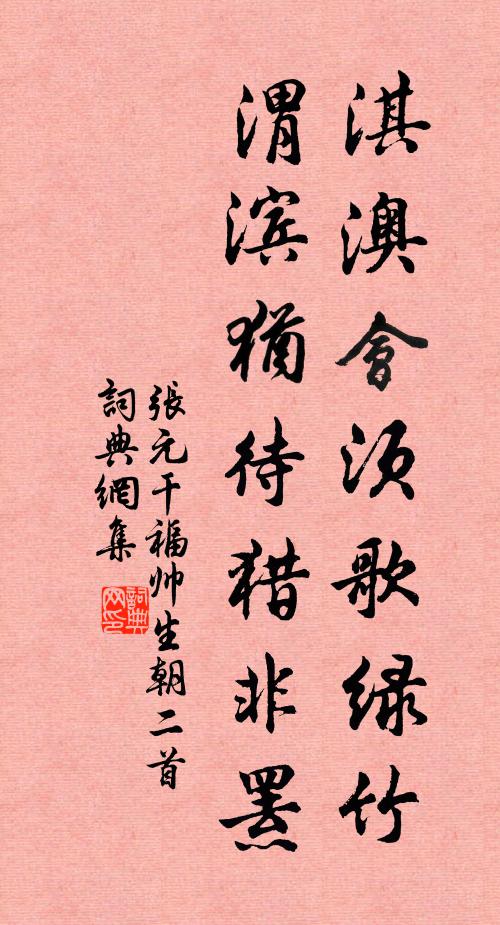 淇澳會須歌绿竹
渭滨猶待猎非罴
張元干福帅生朝二首
詞典網集
詞典网印